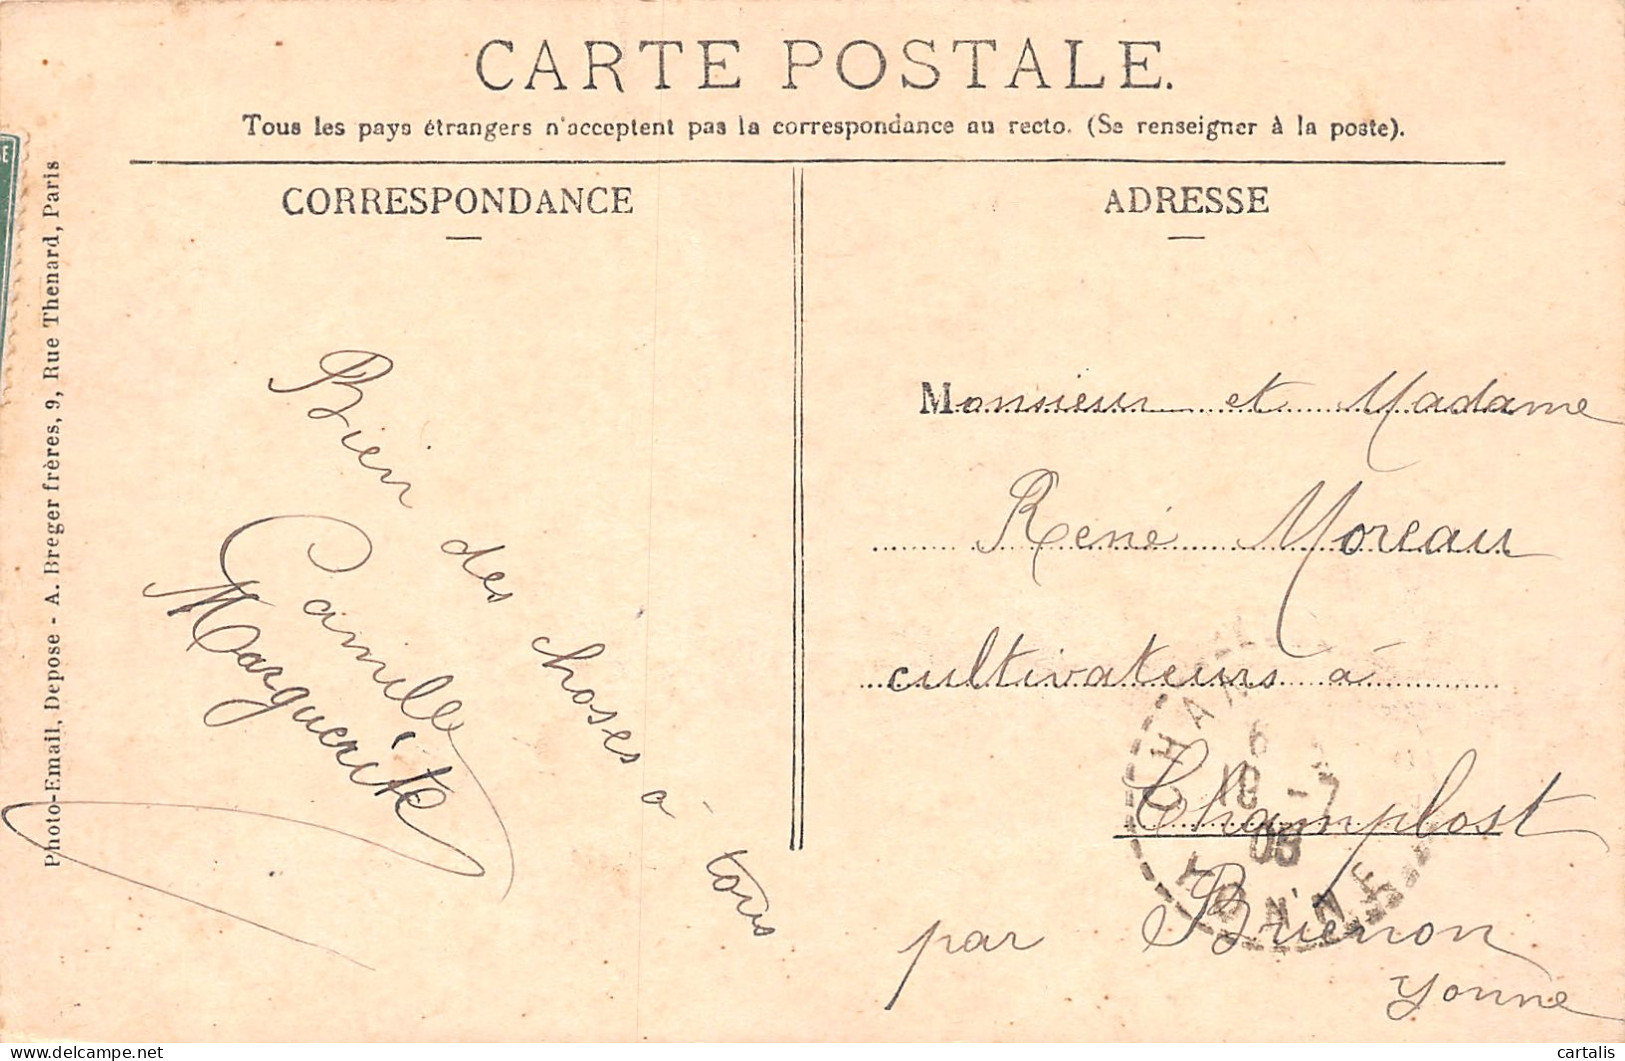 CARTE POSTALE.
Tous les pays étrangers n'acceptent pas la correspondance au recto. (Se renseigner à la poste).
CORRESPONDANCE
Bien des choses à tous
Camille
Marguerite
ADRESSE
Monsieur et Madame
René Moreau
cultivateurs à
Champlost
par Briénon
Yonne
YONNE
Photo-Email, Depose - A. Breger frères, 9, Rue Thenard, Paris
www.delcampe.net
cartalis